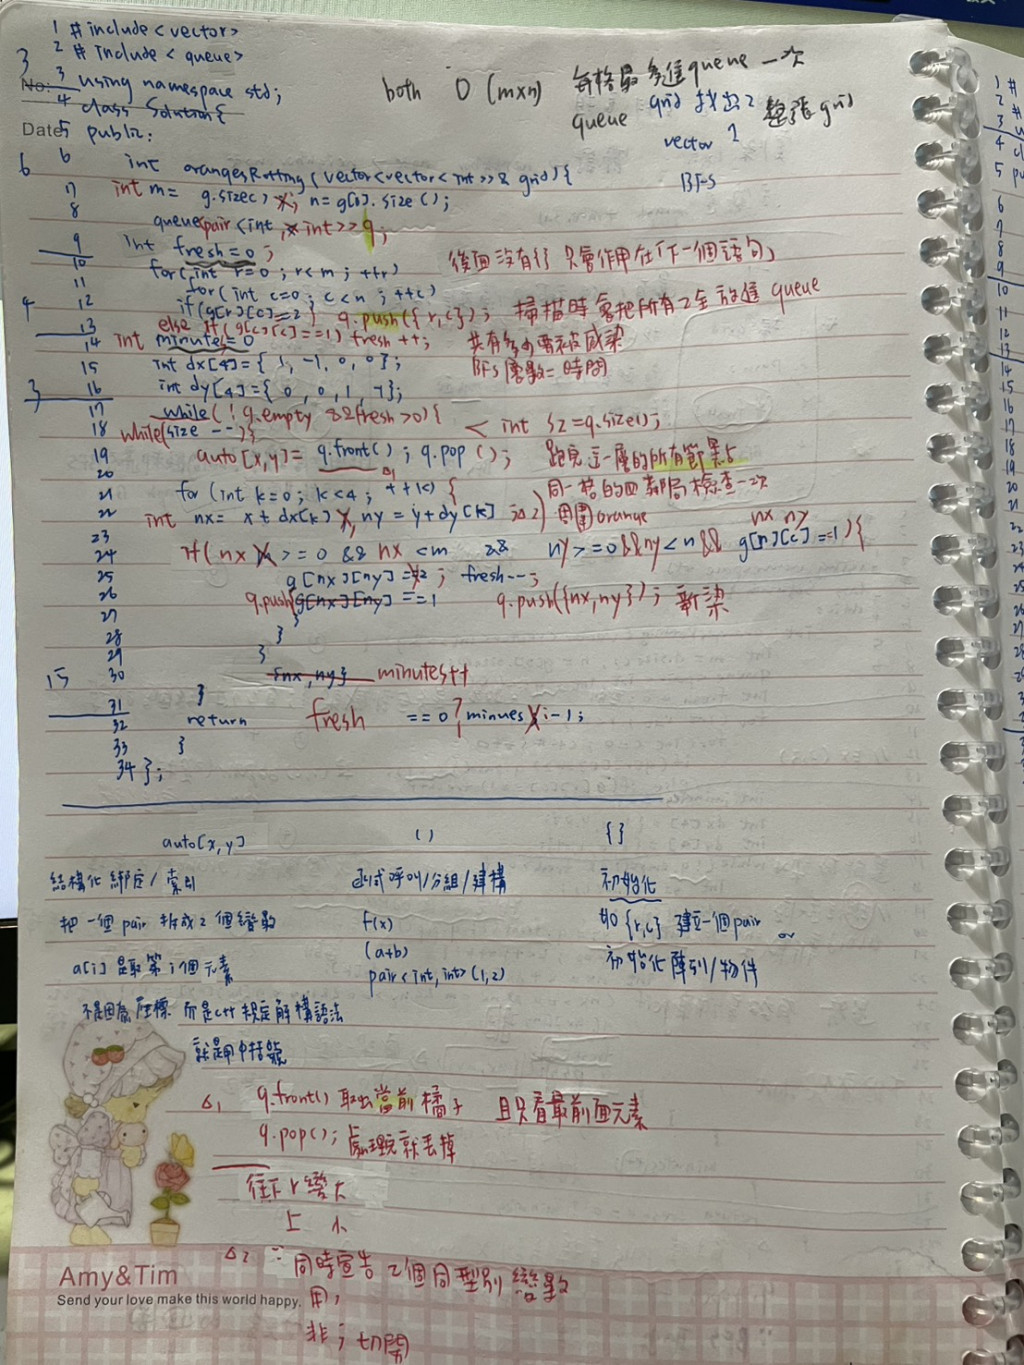 1 #include<vector>
2 #include<queue>
3
No:
3 using namespace std;
4 class Solution{
Date
5 public:
both O(m×n) 每格最多進queue一次
queue grid 找出2 整張grid
vector 1
BFS
6
6 int orangesRotting(vector<vector<int>>& grid){
7 int m= g.size() ; n=g[0].size();
8 queue<pair<int,int>>q;
9 int fresh=0;
10 for(int r=0; r<m; ++r) 後面沒有{} 只會作用在下一個語句,
11 for(int c=0; c<n; ++c)
4
12 if(g[r][c]==2) q.push({r,c}); 掃描時會把所有2全放進 queue
13 else if(g[r][c]==1) fresh++; 共有多少需被感染
14 int minutes=0 BFS層數=時間
15 int dx[4]={1,-1,0,0};
3
16 int dy[4]={0,0,1,-1};
17 while(!q.empty &&fresh>0){ < int sz=q.size();
18 while(size--){
19 auto[x,y]= q.front(); q.pop(); 跑完這一層的所有節點
20 △1
21 for(int k=0; k<4; ++k){ 同一格的四鄰居檢查一次
22 int nx= x+dx[k] , ny=y+dy[k] △2) 周圍orange
23 nx ny
24 if(nx >=0 && nx <m && ny>=0&&ny<n&& g[r][c]==1){
25 g[nx][ny]=2; fresh--;
26 q.push(g[nx][ny]==1 q.push({nx,ny}); 新染
27 }
28 }
29 }
15
30 {nx,ny} minutes++
31 }
32 return fresh ==0?minues:-1;
33 }
34 };
auto[x,y] () {}
結構化綁定/索引 函式呼叫/分組/建構 初始化
把一個pair拆成2個變數 f(x) 如{r,c}建立一個pair or
(a+b)
a[i]是取第i個元素 pair<int,int>(1,2) 初始化陣列/物件
不是因為座標 而是c++規定解構語法
就是用中括號
△1 q.front()取出當前橘子 且只看最前面元素
q.pop(); 處理完就丟掉
往下r變大
上 小
△2 ∵同時宣告2個同型別變數
用,
非; 切開
Amy&Tim
Send your love make this world happy.